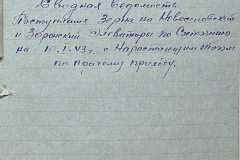 Сводная Ведомость
Поступления Зерна на Новосиловский
и Эбранский Элеваторы по Состоянию
на 10.I.43г. с Нарастающим Итогом
по прочему приходу.